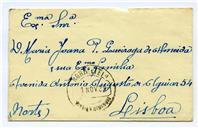 E.ma
Ex. Snr.
D. Maria Joana P. Luciaga de Almeida
sua Ex. Família
Avenida Antonio Augusto de Aguiar 34
(Norte)
Lisboa